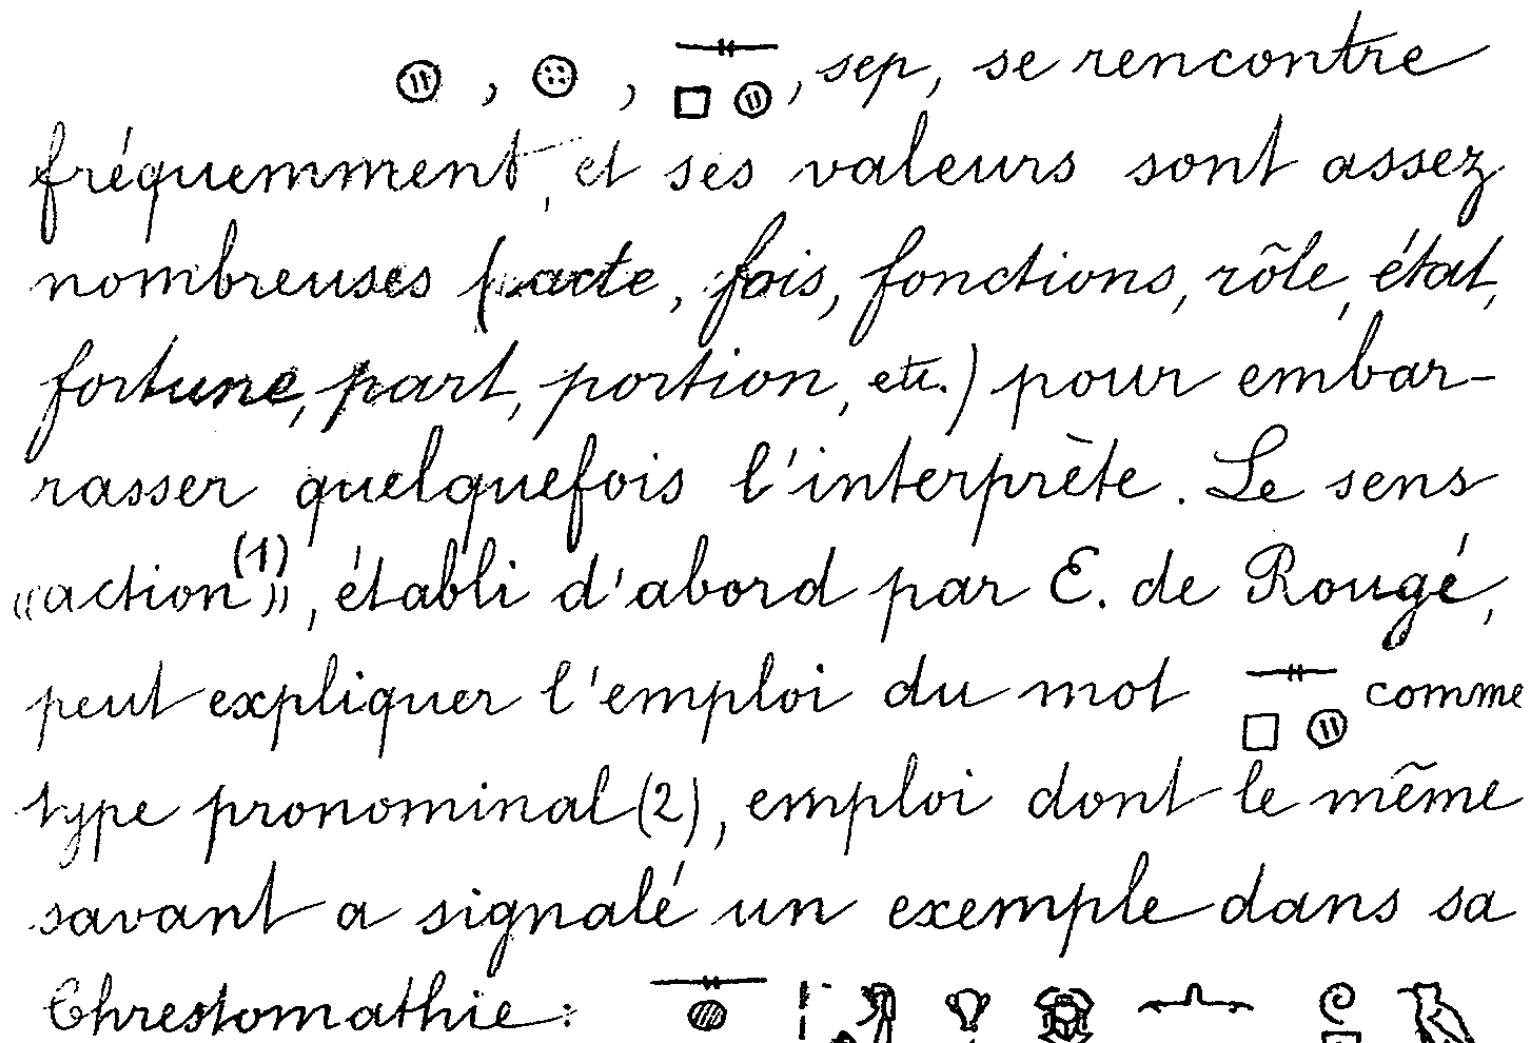 𓊗, 𓊗, 𓊃𓊪𓊗, sep, se rencontre
fréquemment, et ses valeurs sont assez
nombreuses (acte, fois, fonctions, rôle, état,
fortune, part, portion, etc.) pour embar-
rasser quelquefois l'interprète. Le sens
«action(1)», établi d'abord par E. de Rougé,
peut expliquer l'emploi du mot 𓊃𓊪𓊗 comme
type pronominal (2), emploi dont le même
savant a signalé un exemple dans sa
Chrestomathie: